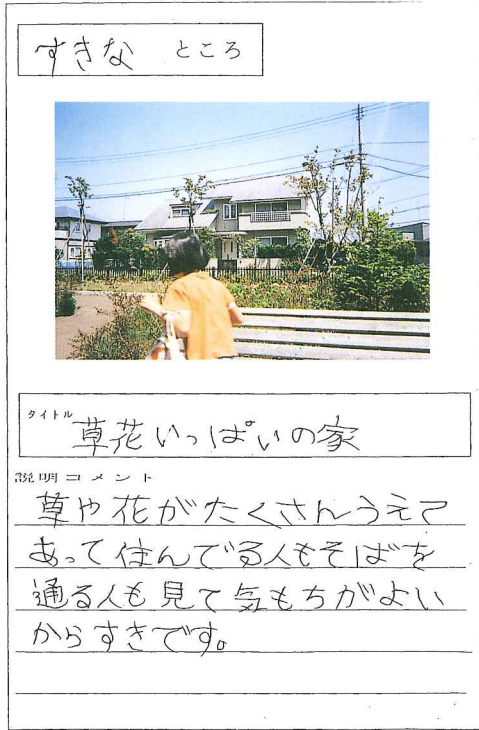 すきな ところ
タイトル 草花いっぱいの家
説明コメント
草や花がたくさんうえて
あって住んでる人もそばを
通る人も見て気もちがよい
からすきです。